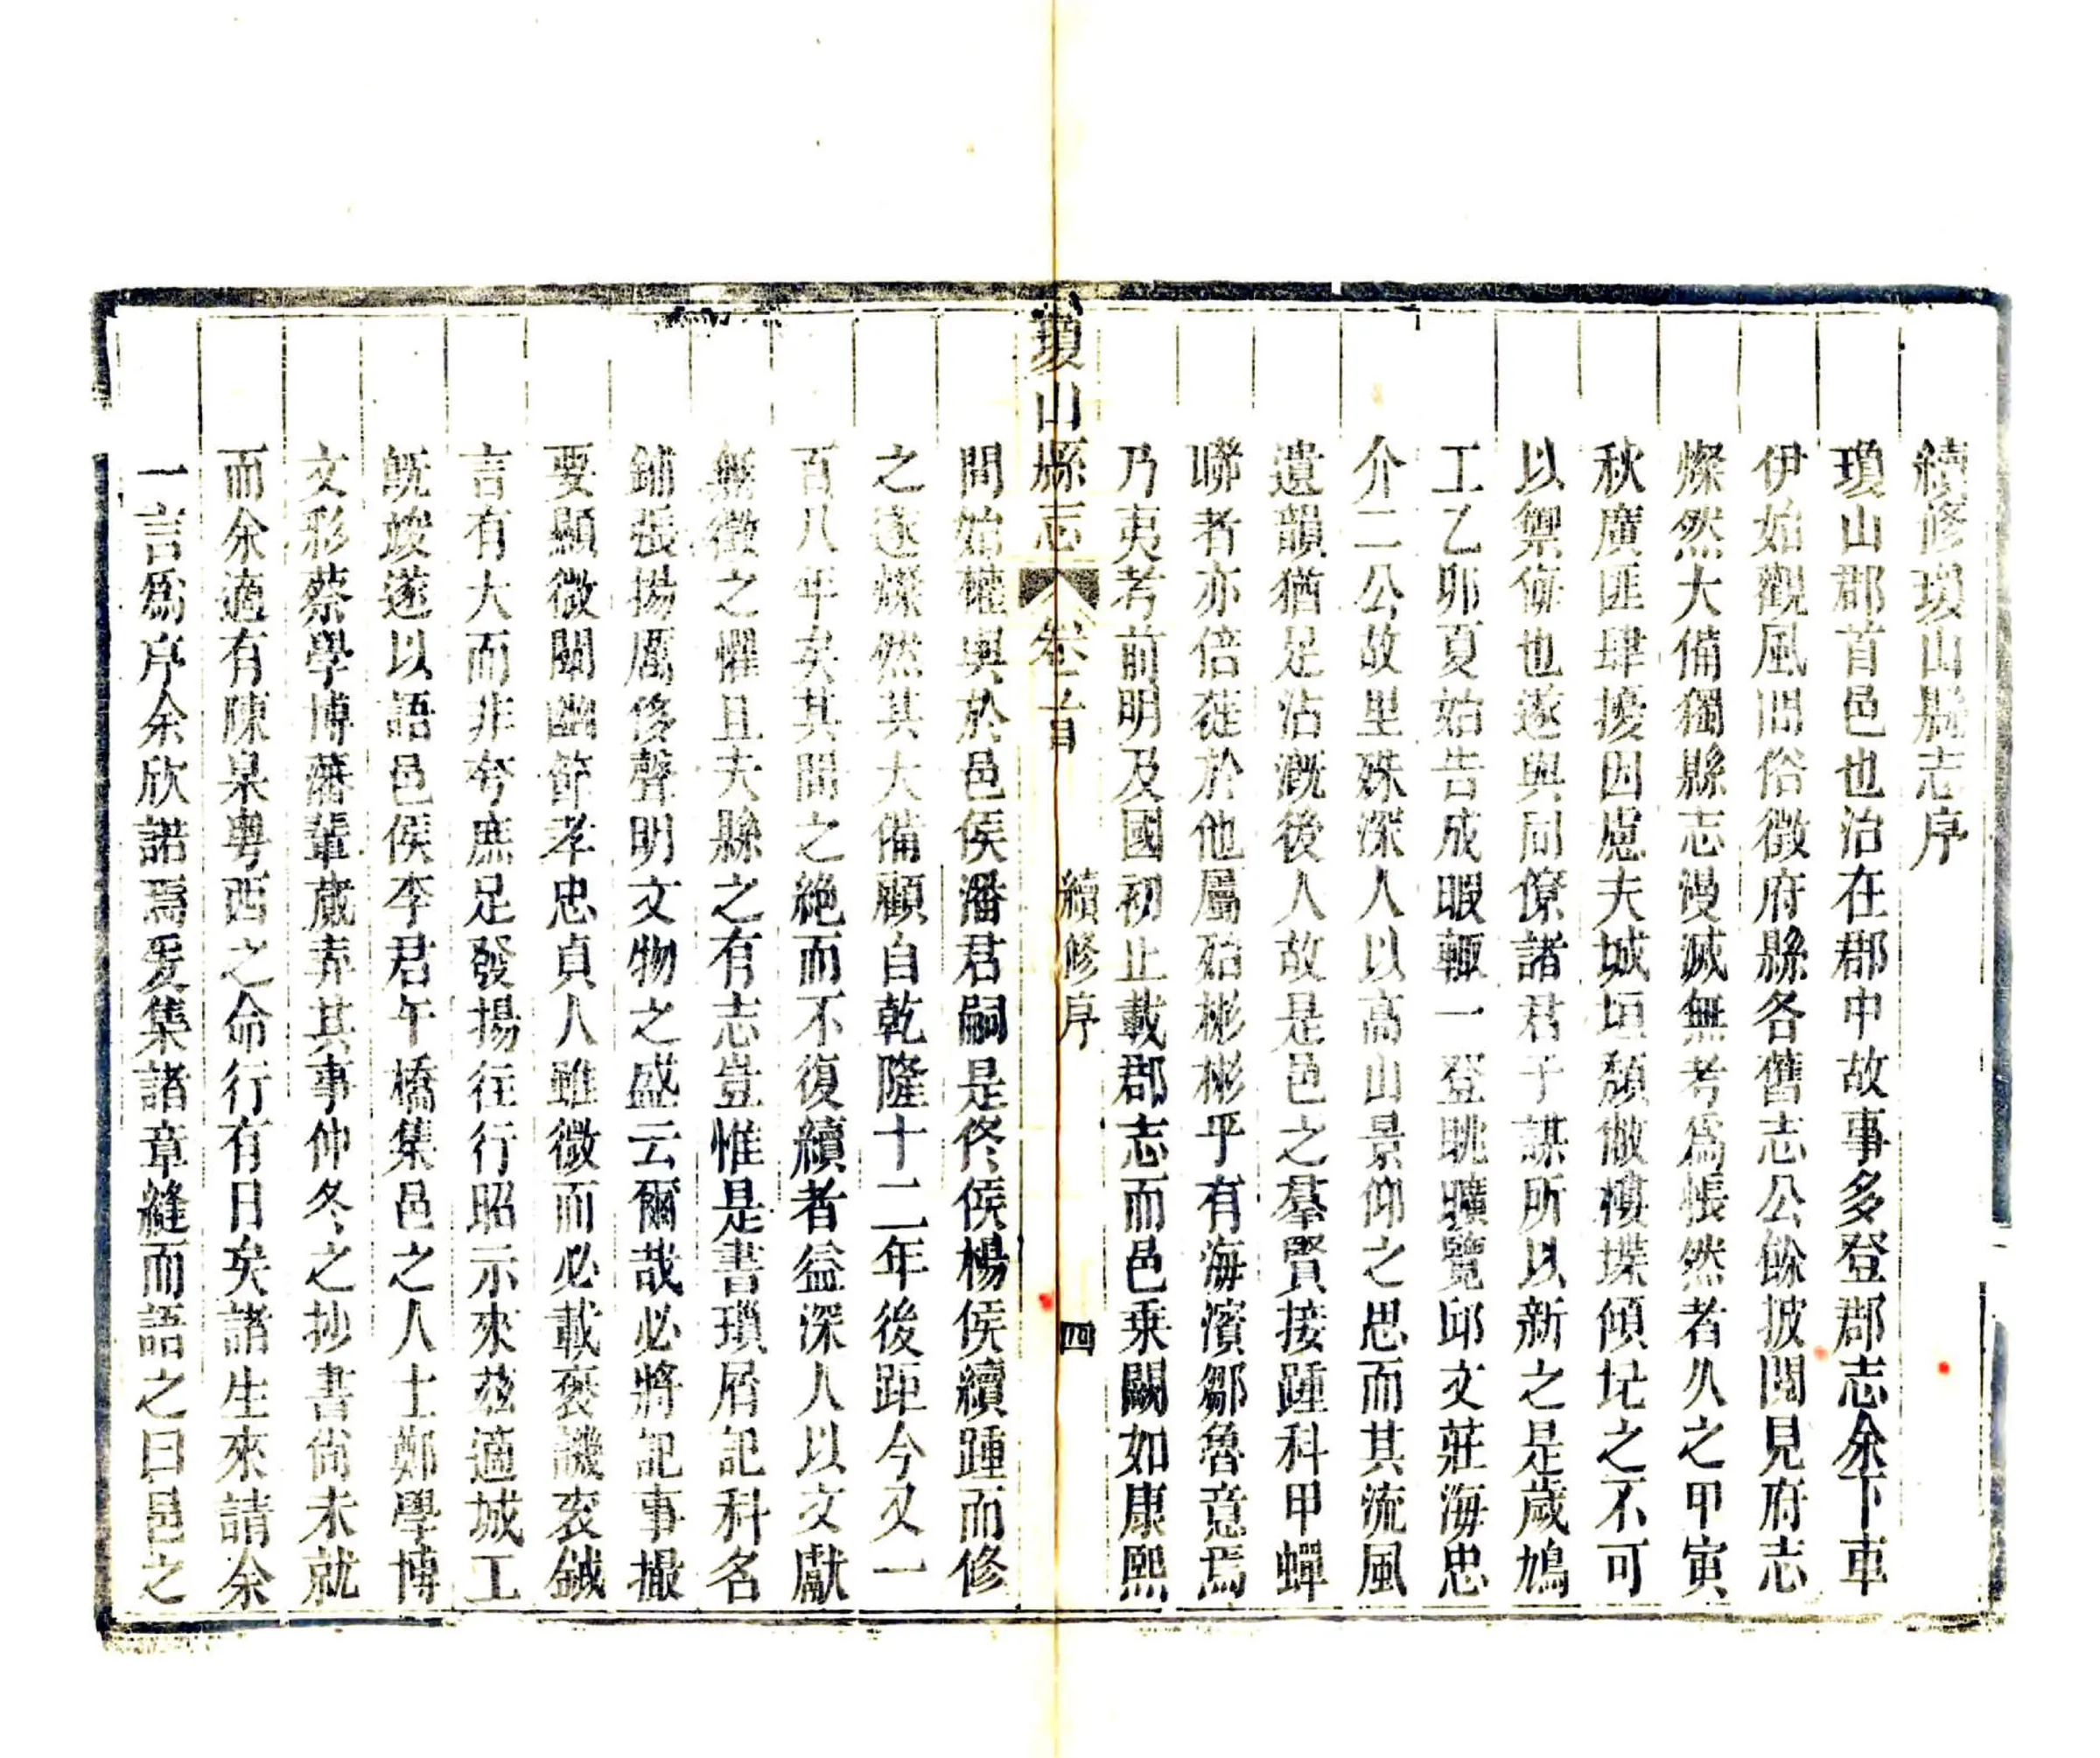 續修瓊山縣志序
瓊山郡首邑也治在郡中故事多登郡志余下車
伊始觀風問俗徵府縣各舊志公餘披閱見府志
燦然大備獨縣志漫滅無考爲悵然者久之甲寅
秋廣匪肆擾因慮夫城垣頹敝樓堞傾圮之不可
以禦侮也遂與同僚諸君子謀所以新之是歲鳩
工乙卯夏始告成暇輒一登眺曠覽邱文莊海忠
介二公故里殊深人以高山景仰之思而其流風
遺韻猶足沾漑後人故是邑之羣賢接踵科甲蟬
聯者亦倍蓰於他屬殆彬彬乎有海濱鄒魯意焉
乃夷考前明及國初止載郡志而邑乗闕如康熙
瓊山縣志 卷首 續修序 四
間始權輿於邑侯潘君嗣是佟侯楊侯續踵而修
之遂燦然其大備顧自乾隆十二年後距今又一
百八年矣其間之絶而不復續者益深人以文獻
無徵之懼且夫縣之有志豈惟是書瑣屑記科名
鋪張揚厲侈聲明文物之盛云爾哉必將記事撮
要顯微闡幽節孝忠貞人雖微而必載褒譏衮鉞
言有大而非夸庶足發揚往行昭示來茲適城工
旣竣遂以語邑侯李君午橋集邑之人士鄭學博
文彩蔡學博藩輩蕆弆其事仲冬之抄書尙未就
而余適有陳臬粤西之命行有日矣諸生來請余
一言爲序余欣諾焉爰集諸章縫而語之曰邑之